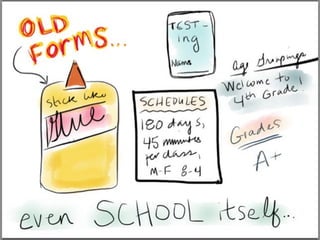 OLD
FORMS...
TEST-
ing
Name
age groupings
Welcome to
4th Grade!
stick like
glue
SCHEDULES
180 days,
45 minutes
per class,
M-F 8-4
Grades
A+
even SCHOOL itself...